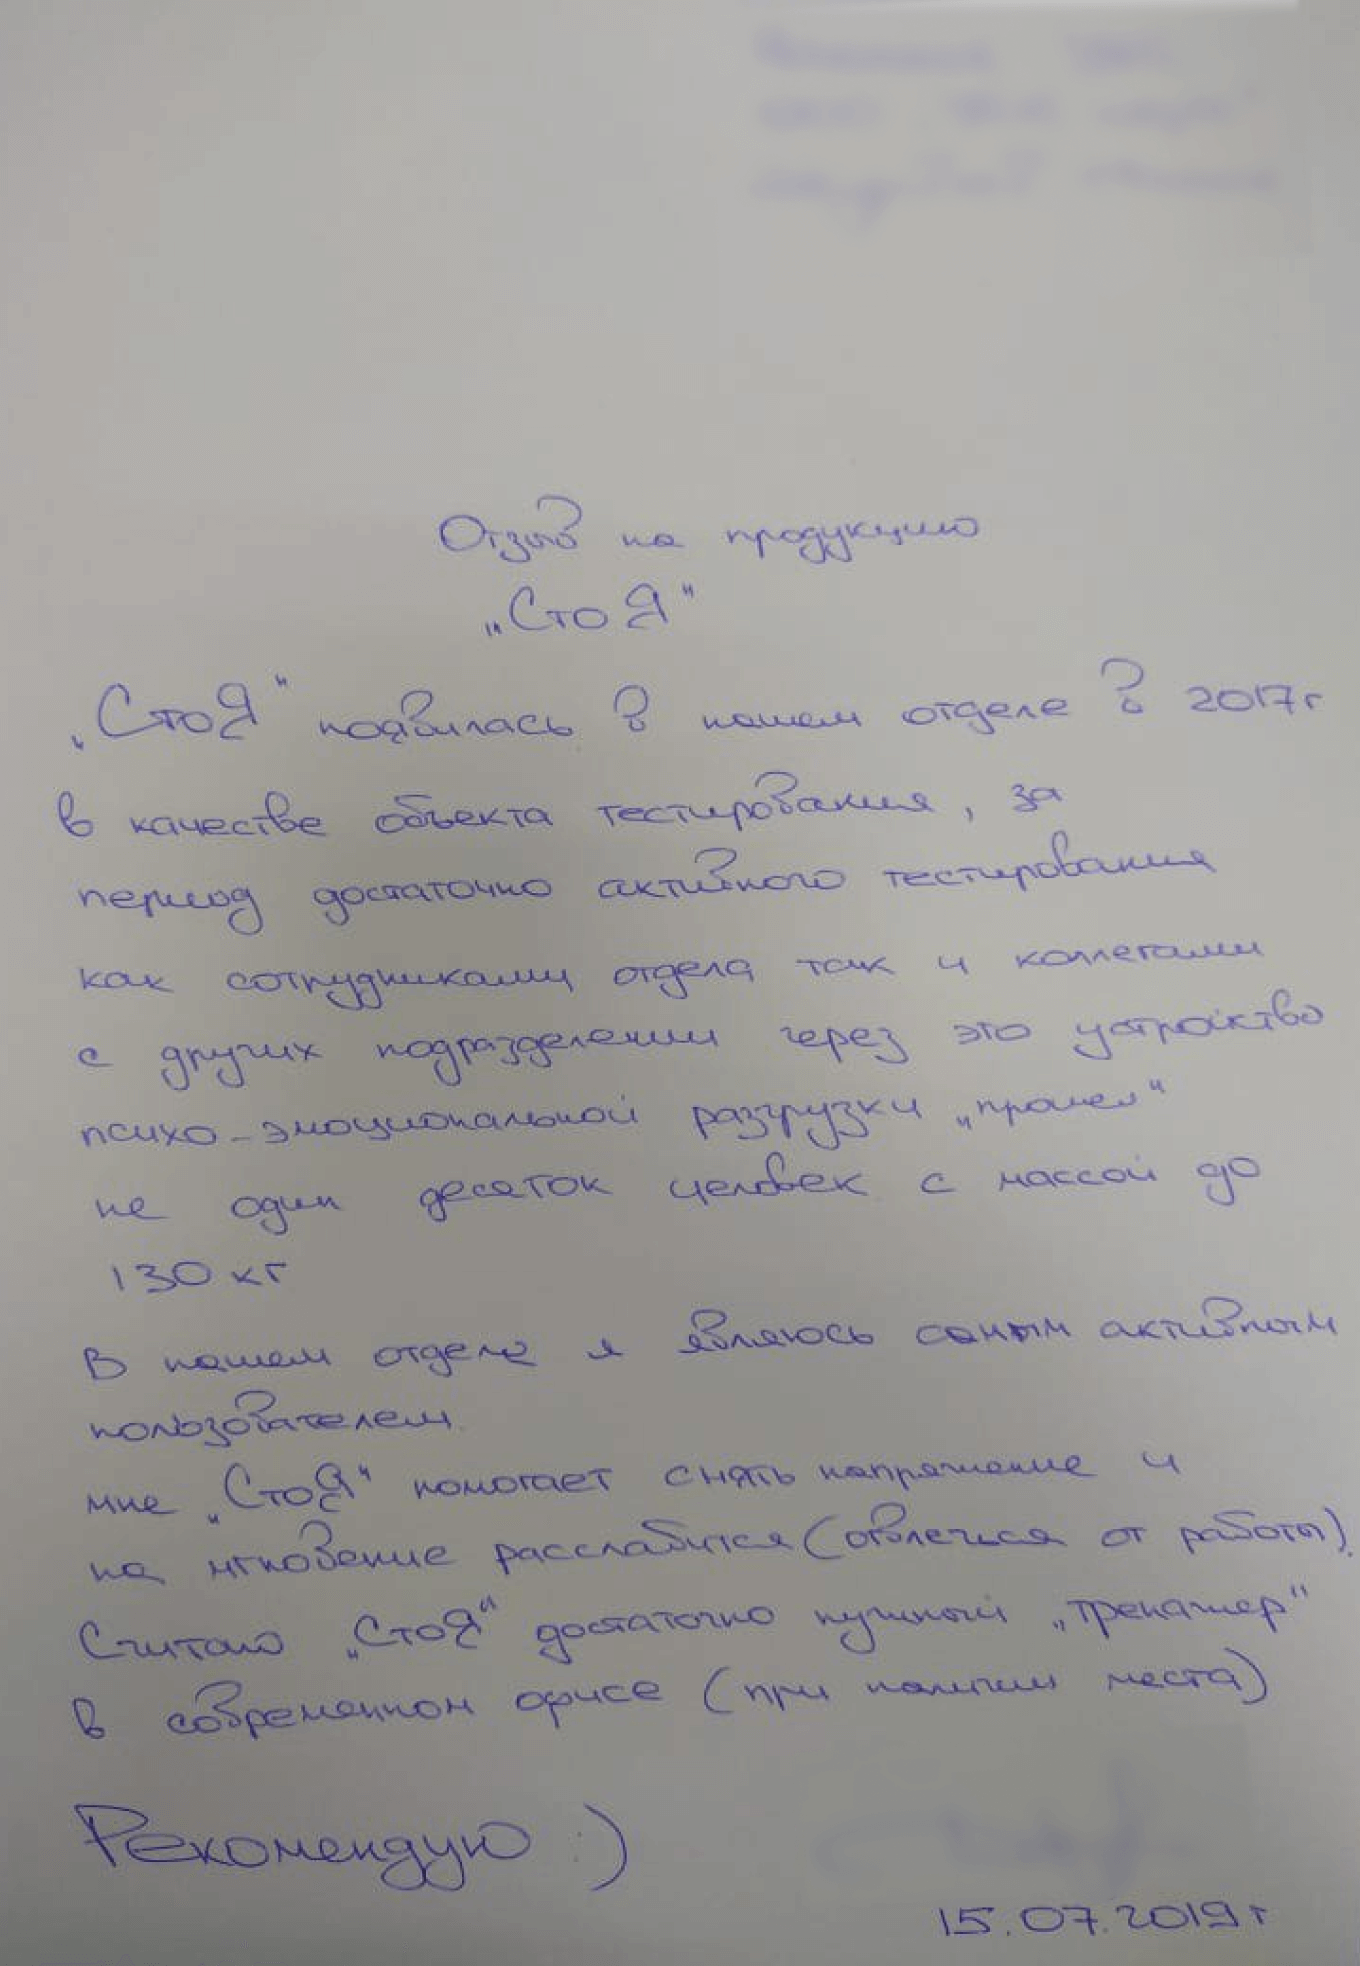 Отзыв на продукцию
„СтоЯ"
„СтоЯ" появилась в нашем отделе в 2017г
в качестве объекта тестирования, за
период достаточно активного тестирования
как сотрудниками отдела так и коллегами
с других подразделении через это устройство
психо-эмоциональной разгрузки „прошел"
не один десяток человек с массой до
130 кг
В нашем отделе я являюсь самым активным
пользователем.
мне „СтоЯ" помогает снять напряжение и
на мгновение расслабится (отвлечься от работы).
Считаю „СтоЯ" достаточно нужный „тренажер"
в современном офисе (при наличии места)
Рекомендую :)
15.07.2019 г